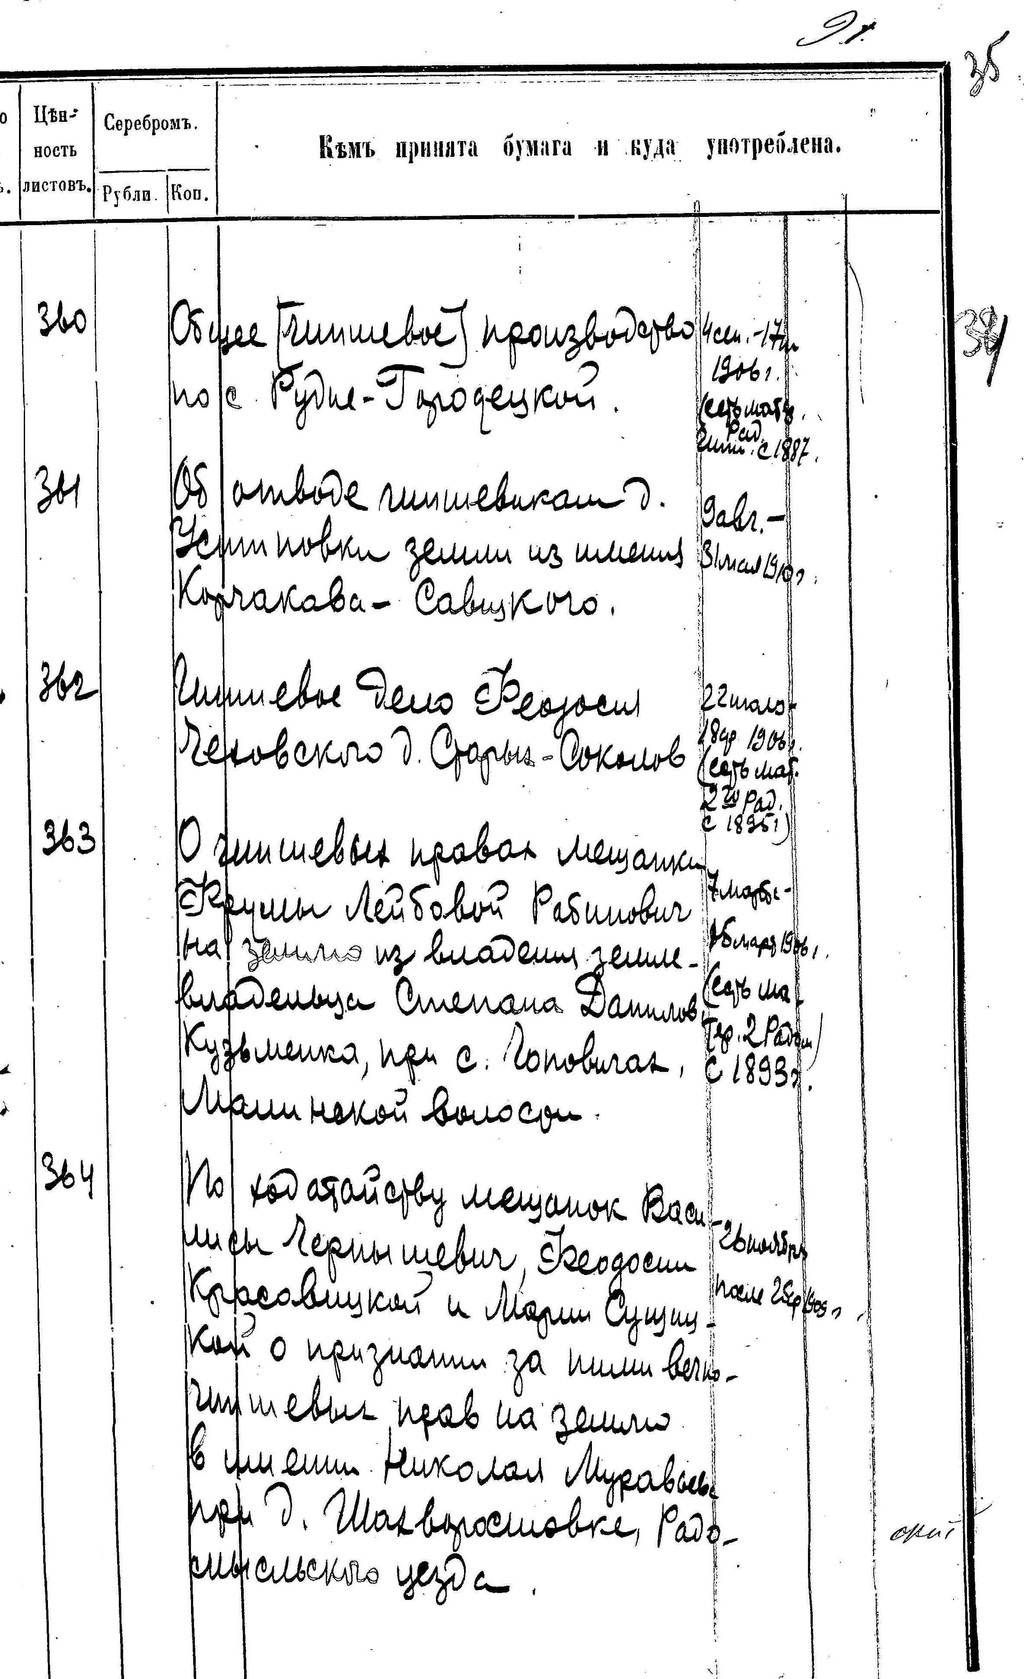 35
Цѣн-
ность
листовъ.
Серебромъ.
Рубли.
Коп.
Кѣмъ принята бумага и куда употреблена.
34
360
Общее [чиншевое] производство
по с. Рудне-Городецкой.
4 сен. - 17
1906 г.
(есть матер.
Рад.
с 1887.
361
Об отводе чиншевикам д.
Устиновки земли из имения
Корчакова-Савицкого.
9 авг. -
31 мая 1910 г.
362
Чиншевое дело Феодосия
Чеховского д. Старых-Соколов
22 июля -
1906 г.
(есть мат.
Рад.
с 1895 г)
363
О чиншевых правах мещанки
Фрумы Лейбовой Рабинович
на землю из владения земле-
владельца Степана Данилов.
Кузьменка, при с. Гоповичах,
Малинской волости.
7 марта -
1906 г.
(есть ма-
тер. 2 Радом)
с 1893 г.
364
По ходатайству мещанок Васи-
лисы Чернышевич, Феодосии
Красовицкой и Марии Сущиц-
кой о признании за ними вечно-
чиншевых прав на землю
в имении Николая Муравьева
при д. Шахворостовке, Радо-
мысльского уезда.
26 ноября
после 1909 г.